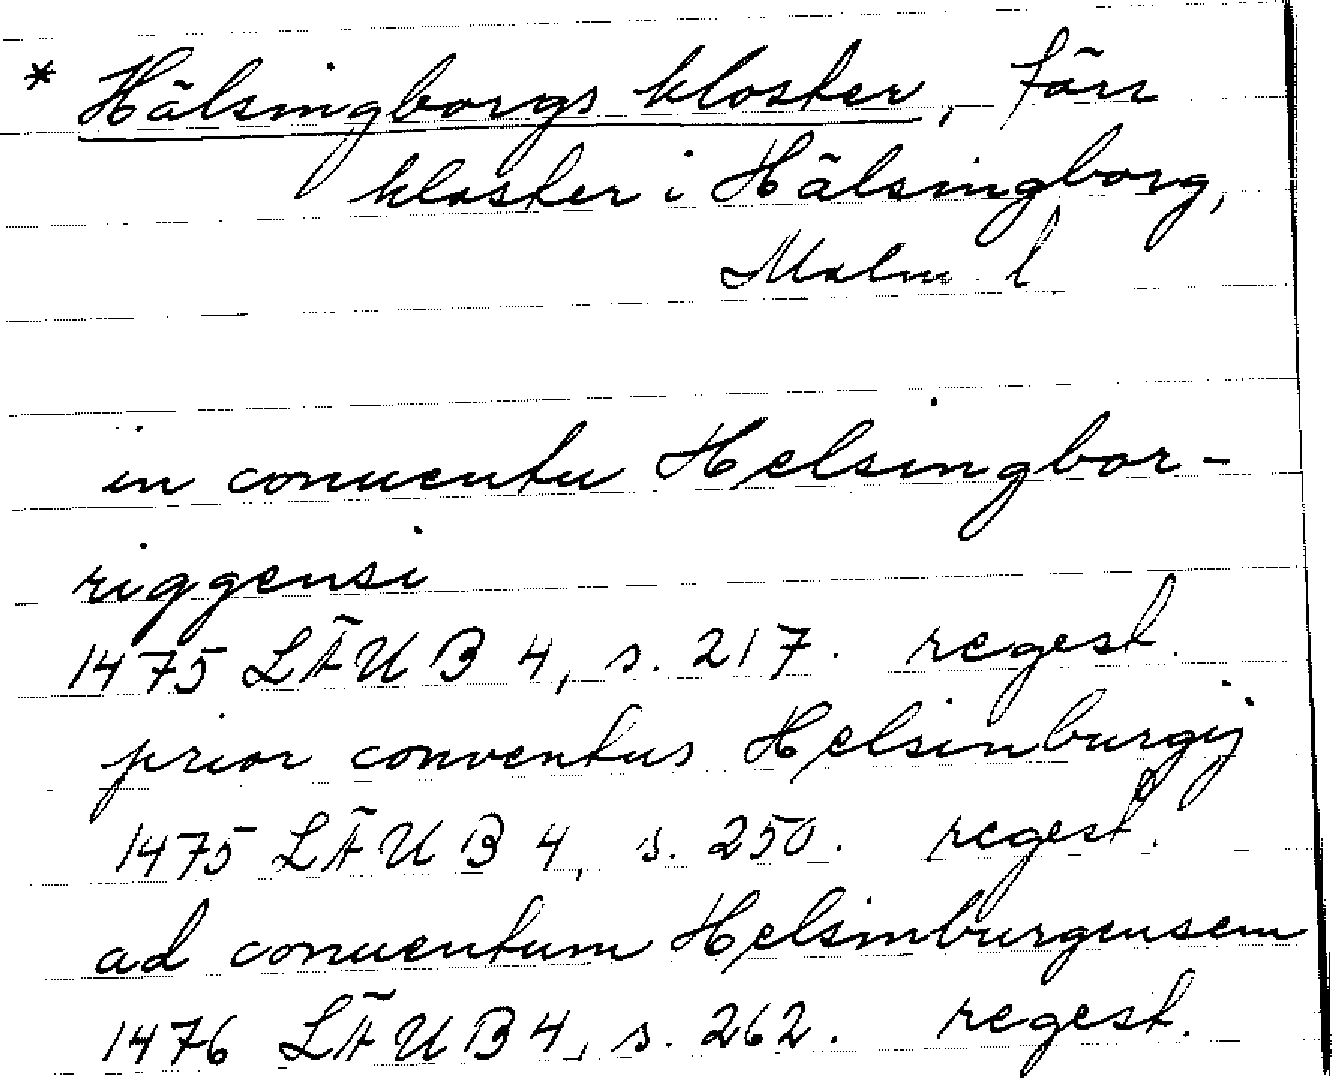 * Hälsingborgs kloster, förr
kloster i Hälsingborg,
Malm l
in conuentu Helsingbor-
riggensi
1475 LÄUB 4, s. 217. regest.
prior conventus Helsinburgij
1475 LÄUB 4, s. 250. regest.
ad conuentum Helsinburgensem
1476 LÄUB 4, s. 262. regest.